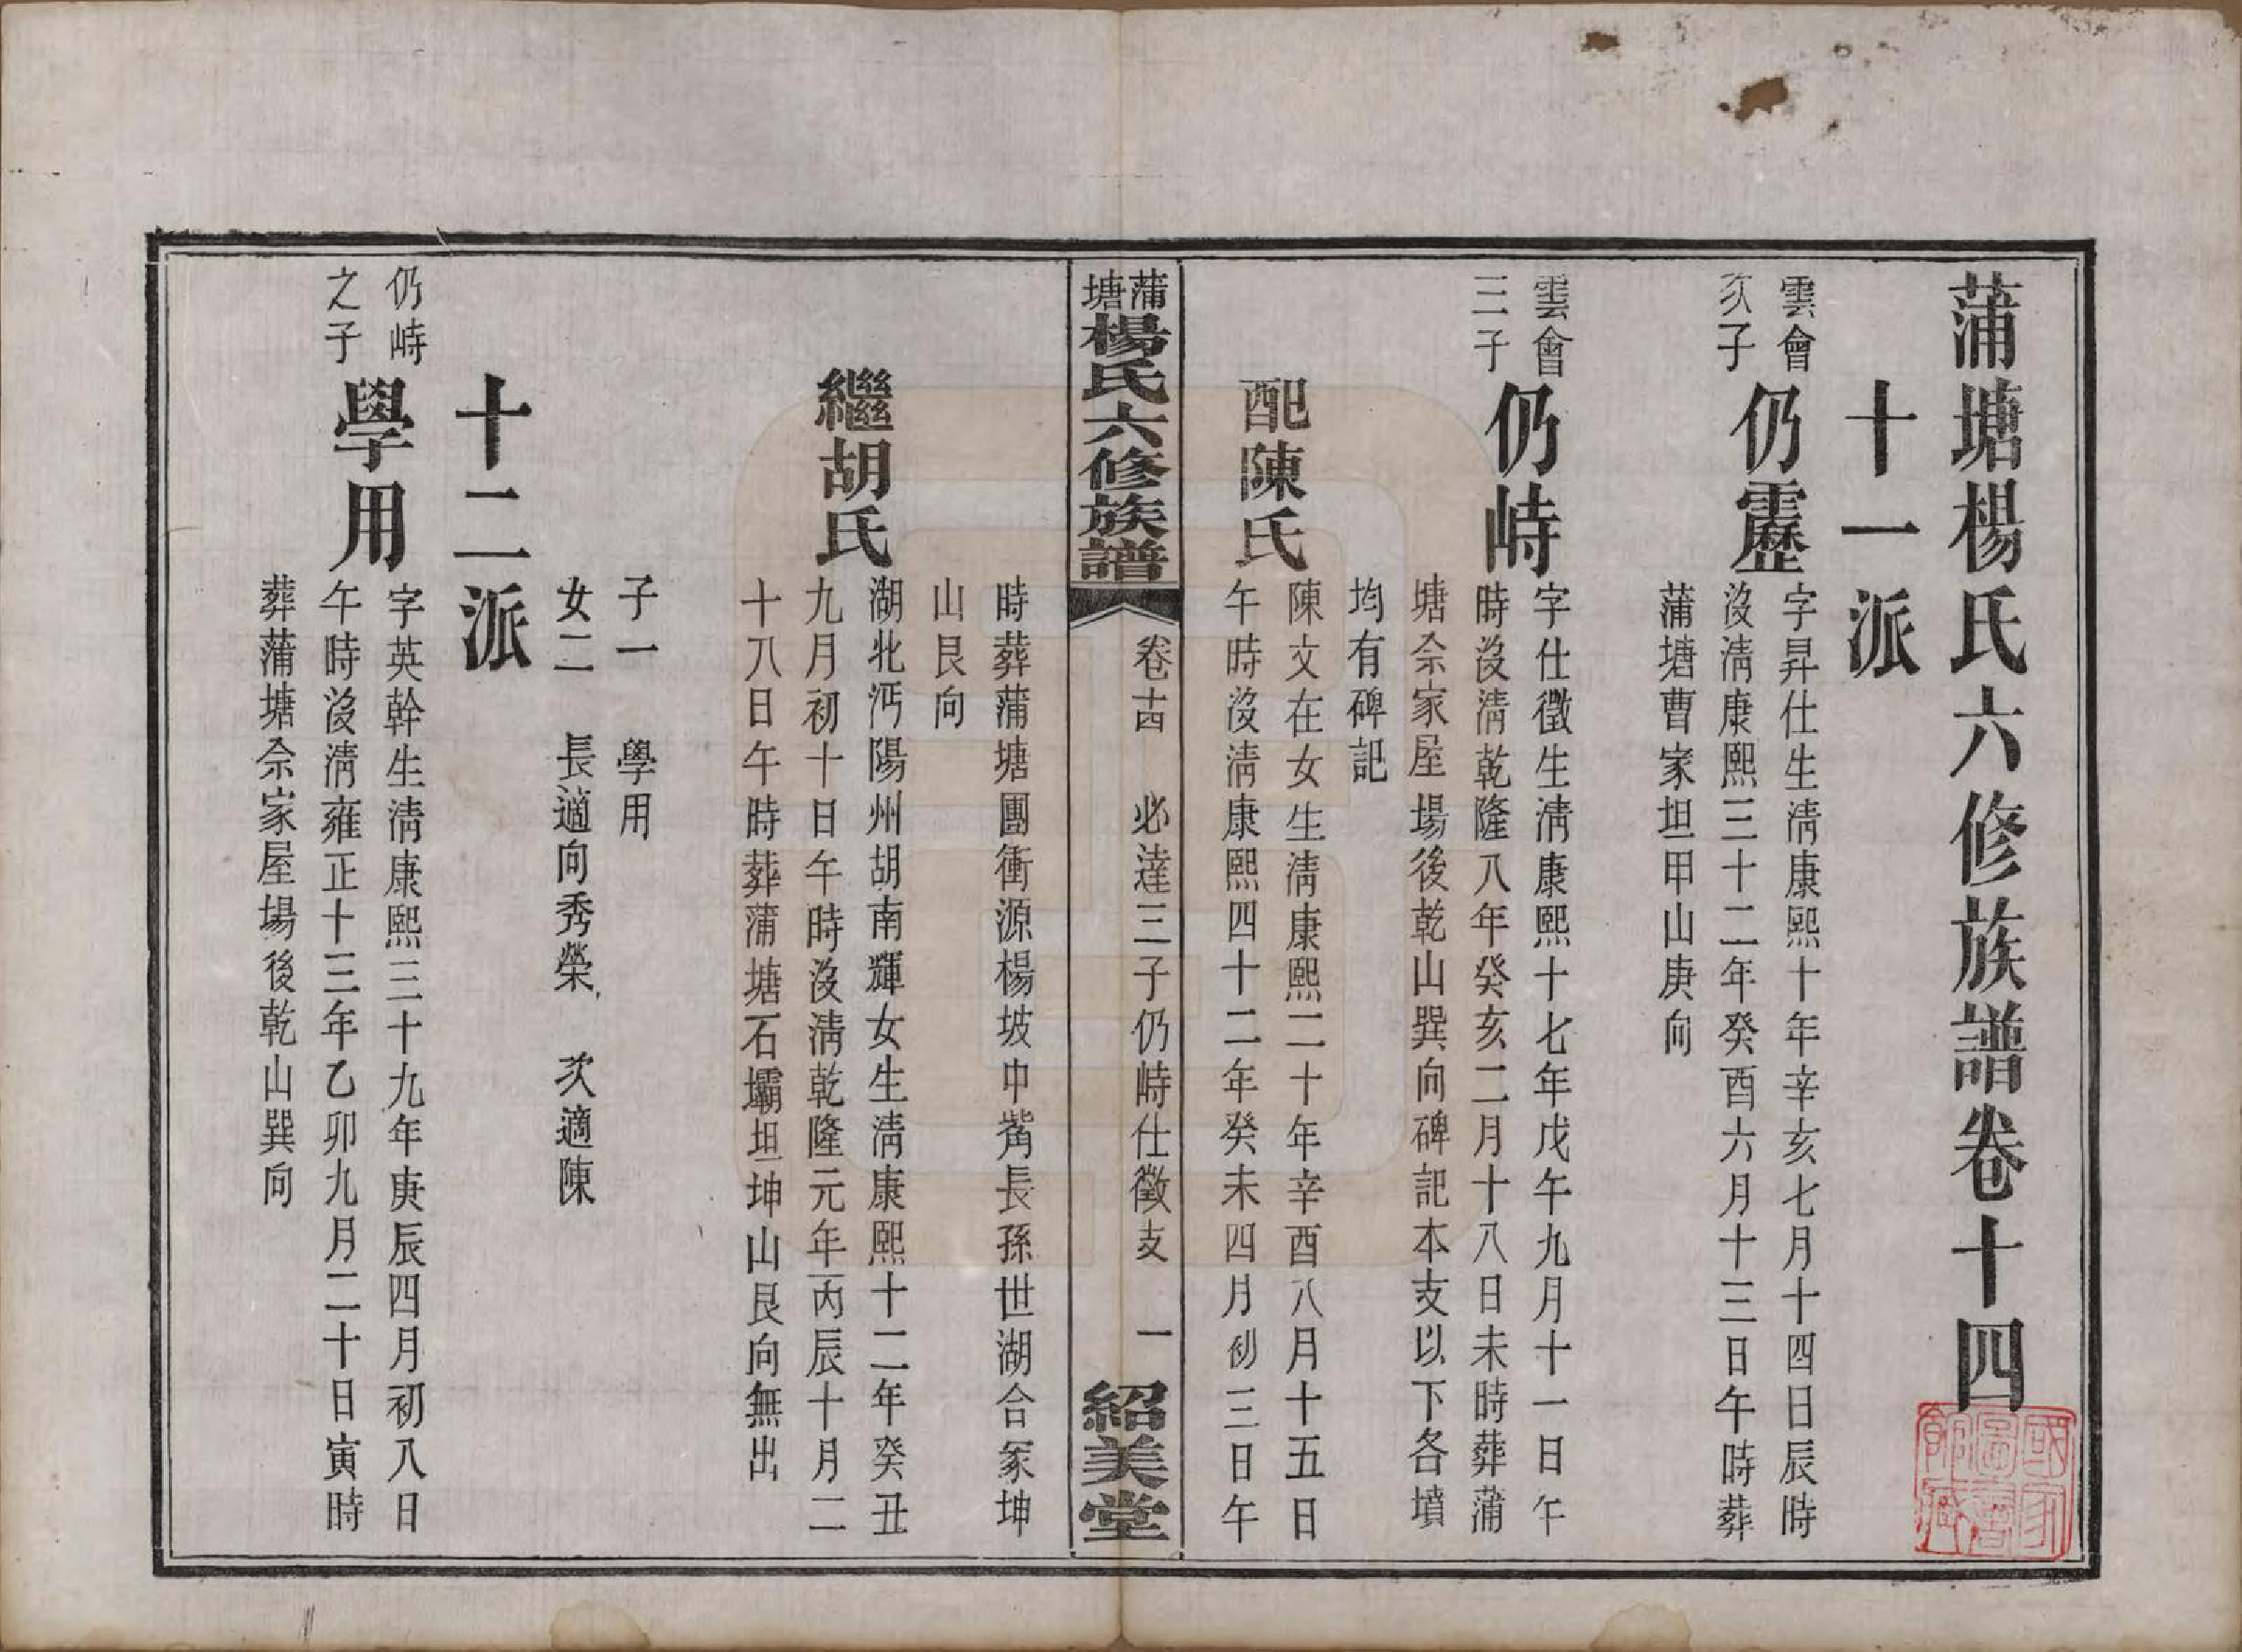 蒲塘楊氏六修族譜卷十四
十一派
雲會
次子
仍靂
字昇仕生淸康熙十年辛亥七月十四日辰時
沒淸康熙三十二年癸酉六月十三日午時葬
蒲塘曹家坦甲山庚向
雲會
三子
仍峙
字仕徵生淸康熙十七年戊午九月十一日午
時沒淸乾隆八年癸亥二月十八日未時葬蒲
塘佘家屋場後乾山巽向碑記本支以下各墳
均有碑記
配陳氏
陳文在女生淸康熙二十年辛酉八月十五日
午時沒淸康熙四十二年癸未四月初三日午
蒲塘楊氏六修族譜
卷十四 必達三子仍峙仕徵支 一
紹美堂
時葬蒲塘團衝源楊坡中嘴長孫世湖合冢坤
山艮向
繼胡氏
湖北沔陽州胡南輝女生淸康熙十二年癸丑
九月初十日午時沒淸乾隆元年丙辰十月二
十八日午時葬蒲塘石壩坦坤山艮向無出
子一 學用
女二 長適向秀榮 次適陳
十二派
仍峙
之子
學用
字英幹生淸康熙三十九年庚辰四月初八日
午時沒淸雍正十三年乙卯九月二十日寅時
葬蒲塘佘家屋場後乾山巽向
國家圖書館藏